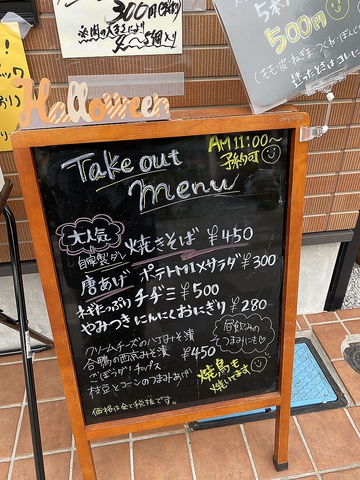 300円(税抜)
4〜5個入り
500円
(もも・皮・ねぎま・つくね・ぼんじり)
迷ったときはコレ!
Halloween
Take out
menu
AM 11:00〜
予約可
大人気
自家製ダレ 焼きそば ¥450
唐あげ ポテトMIXサラダ ¥300
ネギたっぷりチヂミ ¥500
やみつきにんにくおにぎり ¥280
クリームチーズの八丁みそ漬
合鴨の西京みそ漬
ごぼうがりチップス
枝豆とコーンのつまみあげ
¥450
昼飲みの
おつまみにも♡
焼鳥も
焼いてます
価格は全て税抜です。